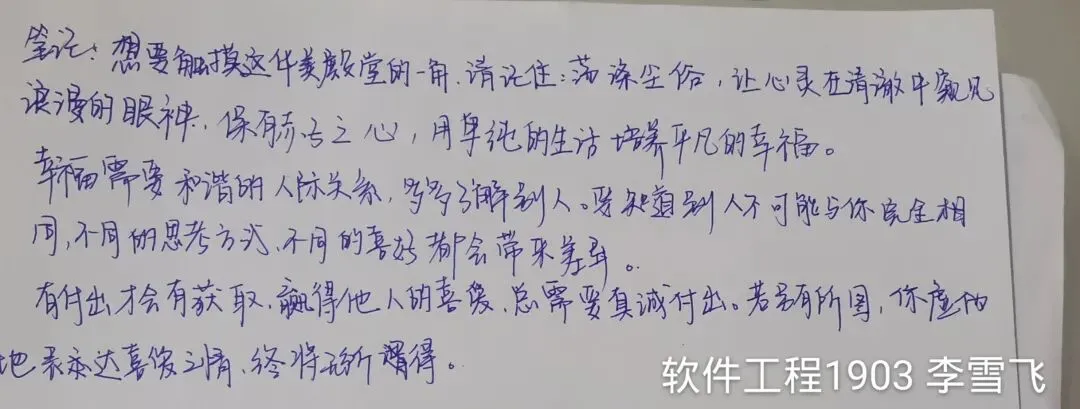 笔记:想要触摸这华美殿堂的一角,请记住:荡涤尘俗,让心灵在清澈中窥见
浪漫的眼神,保有赤子之心,用单纯的生活培养平凡的幸福。
幸福需要和谐的人际关系,多多了解别人。要知道别人不可能与你完全相
同,不同的思考方式、不同的喜好都会带来差异。
有付出才会有获取,赢得他人的喜爱,总需要真诚付出。若另有所图,你虚伪
地表达喜爱之情,终将无所获得。
软件工程1903 李雪飞